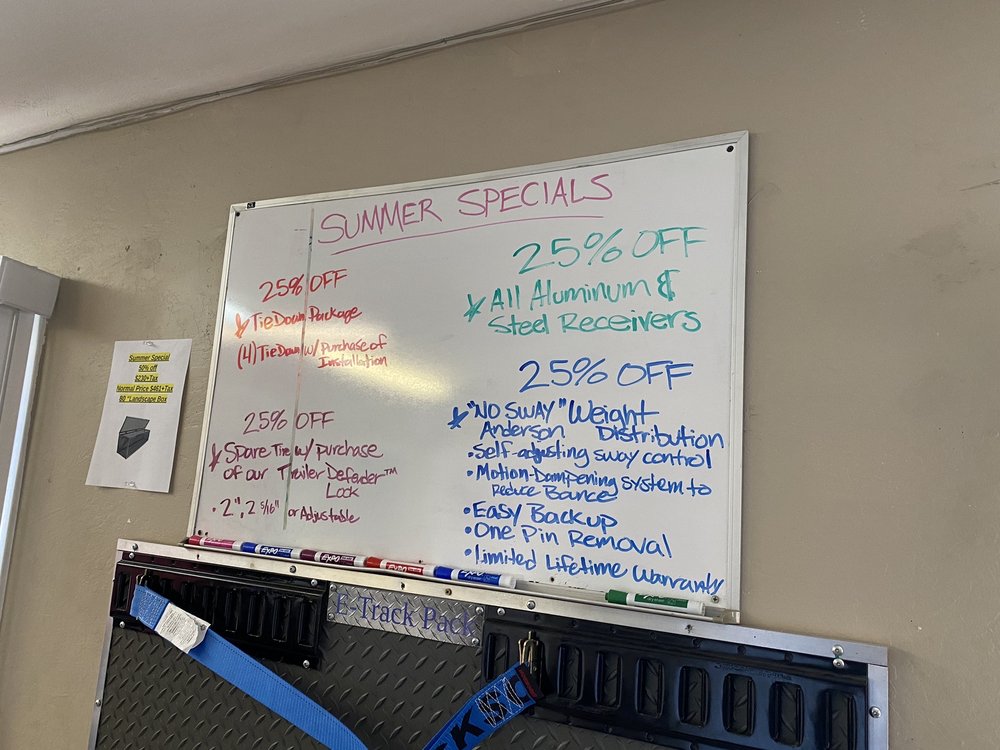 SUMMER SPECIALS
25% OFF
Tie Down Package
(4) Tie Down w/ purchase of
Installation
25% OFF
Spare Tire w/ purchase
of our Trailer Defender™
Lock
• 2", 2 5/16" or Adjustable
25% OFF
All Aluminum &
Steel Receivers
25% OFF
"NO SWAY" Weight
Anderson Distribution
• Self-adjusting sway control
• Motion-Dampening system to
Reduce Bounce
• Easy Backup
• One Pin Removal
• Limited Lifetime Warranty
Summer Special
50% off
$230+Tax
Normal Price $461+Tax
60 "Landscape Box
EXPO
EXPO
EXPO
EXPO
E-Track Pack